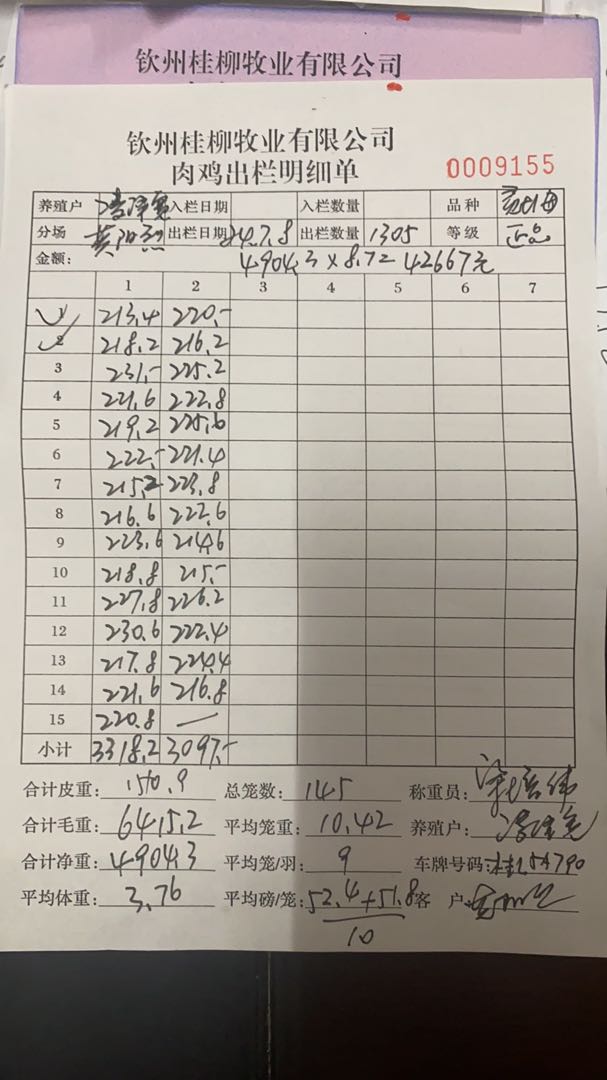 钦州桂柳牧业有限公司
钦州桂柳牧业有限公司
肉鸡出栏明细单 0009155
养殖户 入栏日期 入栏数量 品种
分场 黄阳烈 出栏日期 24.7.8 出栏数量 1305 等级 正品
金额: 4904.3 × 8.72 42667元
1 2 3 4 5 6 7
1 213.4 220.-
2 218.2 216.2
3 231.- 225.2
4 221.6 222.8
5 219.2 225.6
6 222.- 221.4
7 215.2 223.8
8 216.6 222.6
9 223.6 214.6
10 218.8 215.-
11 227.8 226.2
12 230.6 222.4
13 217.8 224.4
14 221.6 216.8
15 220.8 —
小计 3318.2 3097.-
合计皮重: 1510.9 总笼数: 145 称重员:
合计毛重: 6415.2 平均笼重: 10.42 养殖户:
合计净重: 4904.3 平均笼/羽: 9 车牌号码:
平均体重: 3.76 平均磅/笼: 52.4+51.8 客 户:
10